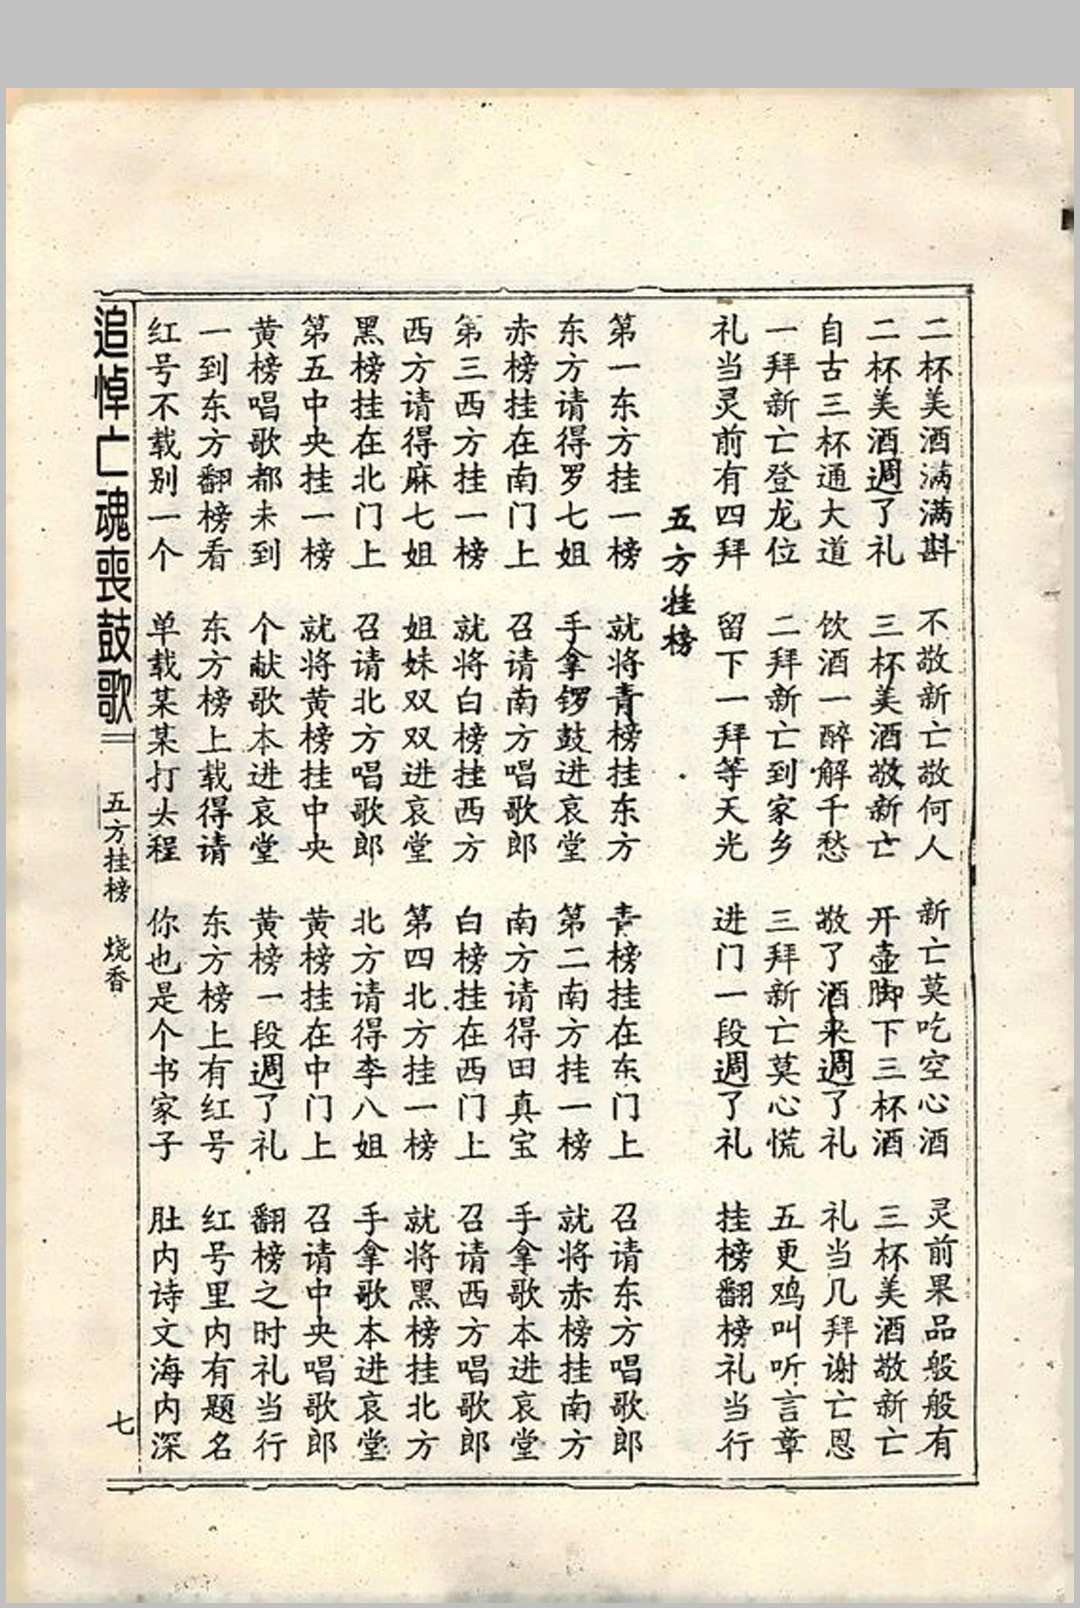 二杯美酒满满斟　不敬新亡敬何人　新亡莫吃空心酒　灵前果品般般有
二杯美酒週了礼　三杯美酒敬新亡　开壶脚下三杯酒　三杯美酒敬新亡
自古三杯通大道　饮酒一醉解千愁　敬了酒来週了礼　礼当几拜谢亡恩
一拜新亡登龙位　二拜新亡到家乡　三拜新亡莫心慌　五更鸡叫听言章
礼当灵前有四拜　留下一拜等天光　进门一段週了礼　挂榜翻榜礼当行
五方挂榜
第一东方挂一榜　就将青榜挂东方　青榜挂在东门上　召请东方唱歌郎
东方请得罗七姐　手拿锣鼓进哀堂　第二南方挂一榜　就将赤榜挂南方
赤榜挂在南门上　召请南方唱歌郎　南方请得田真宝　手拿歌本进哀堂
第三西方挂一榜　就将白榜挂西方　白榜挂在西门上　召请西方唱歌郎
西方请得麻七姐　姐妹双双进哀堂　第四北方挂一榜　就将黑榜挂北方
黑榜挂在北门上　召请北方唱歌郎　北方请得李八姐　手拿歌本进哀堂
第五中央挂一榜　就将黄榜挂中央　黄榜挂在中门上　召请中央唱歌郎
黄榜唱歌都未到　个献歌本进哀堂　黄榜一段週了礼　翻榜之时礼当行
一到东方翻榜看　东方榜上载得请　东方榜上有红号　红号里内有题名
红号不载别一个　单载某某打头程　你也是个书家子　肚内诗文海内深
追悼亡魂丧鼓歌　五方挂榜　烧香　七